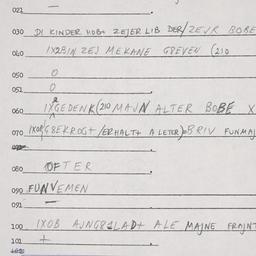 021 —
030 DI KINDER HOB+ ZEJER LIB DER/ZEJR BOBE
040 IX2BIN ZEJ MEKANE G8EVEN (210
050 O
051 O
060 IX GEDENK(210 MAJN ALTER BOBE X
070 IXOB G8EKROG+/ERHALT+ A LETER)=BRIV FUNMAJ
080 OFTER
090 FUNVEMEN
091
100 IXOB AJNG81LAD+ ALE MAJNE FRAJNT
101 +